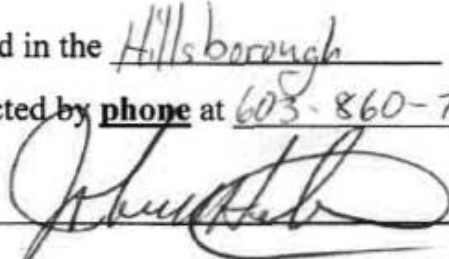 d in the Hillsborough
cted by phone at 603-860-7